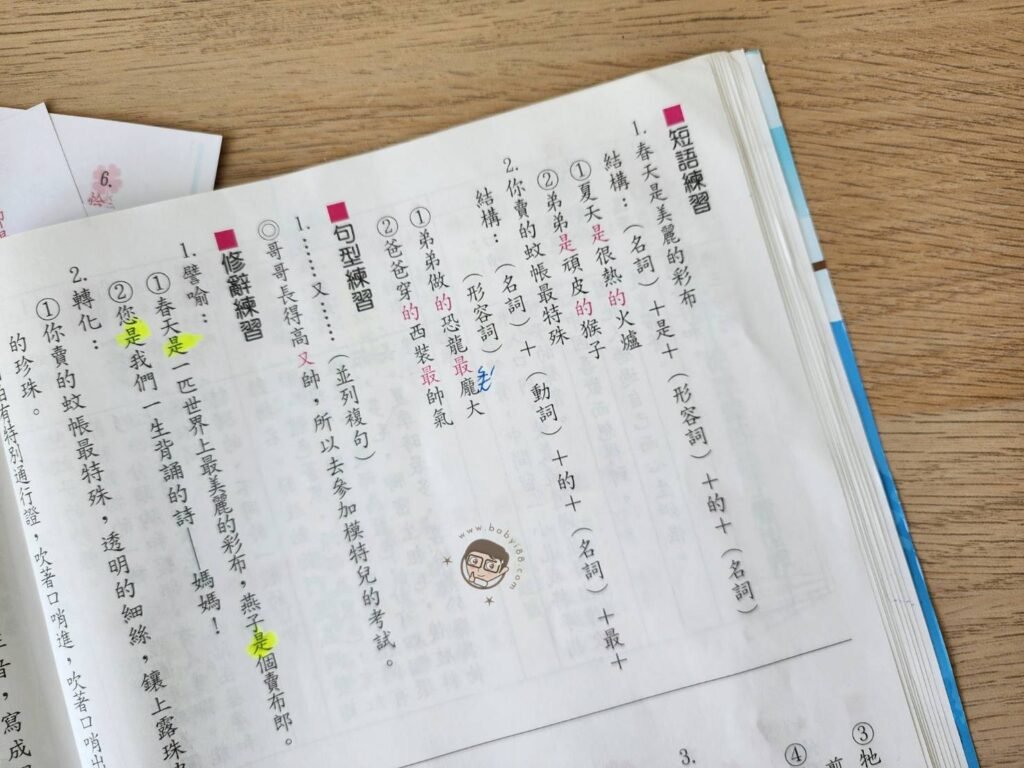 ■短語練習
1. 春天是美麗的彩布
結構：（名詞）＋是＋（形容詞）＋的＋（名詞）
①夏天是很熱的火爐
②弟弟是頑皮的猴子
2. 你賣的蚊帳最特殊
結構：（名詞）＋（動詞）＋的＋（名詞）＋最＋
（形容詞）
①弟弟做的恐龍最龐大
②爸爸穿的西裝最帥氣
■句型練習
1. ……又……（並列複句）
◎哥哥長得高又帥，所以去參加模特兒的考試。
■修辭練習
1. 譬喻：
①春天是一匹世界上最美麗的彩布，燕子是個賣布郎。
②您是我們一生背誦的詩——媽媽！
2. 轉化：
①你賣的蚊帳最特殊，透明的細絲，鑲上露珠
的珍珠。
有特別通行證，吹著口哨進，吹著口哨出
音，寫成
③牠
④
剪
3.
6.
www.babyi88.com